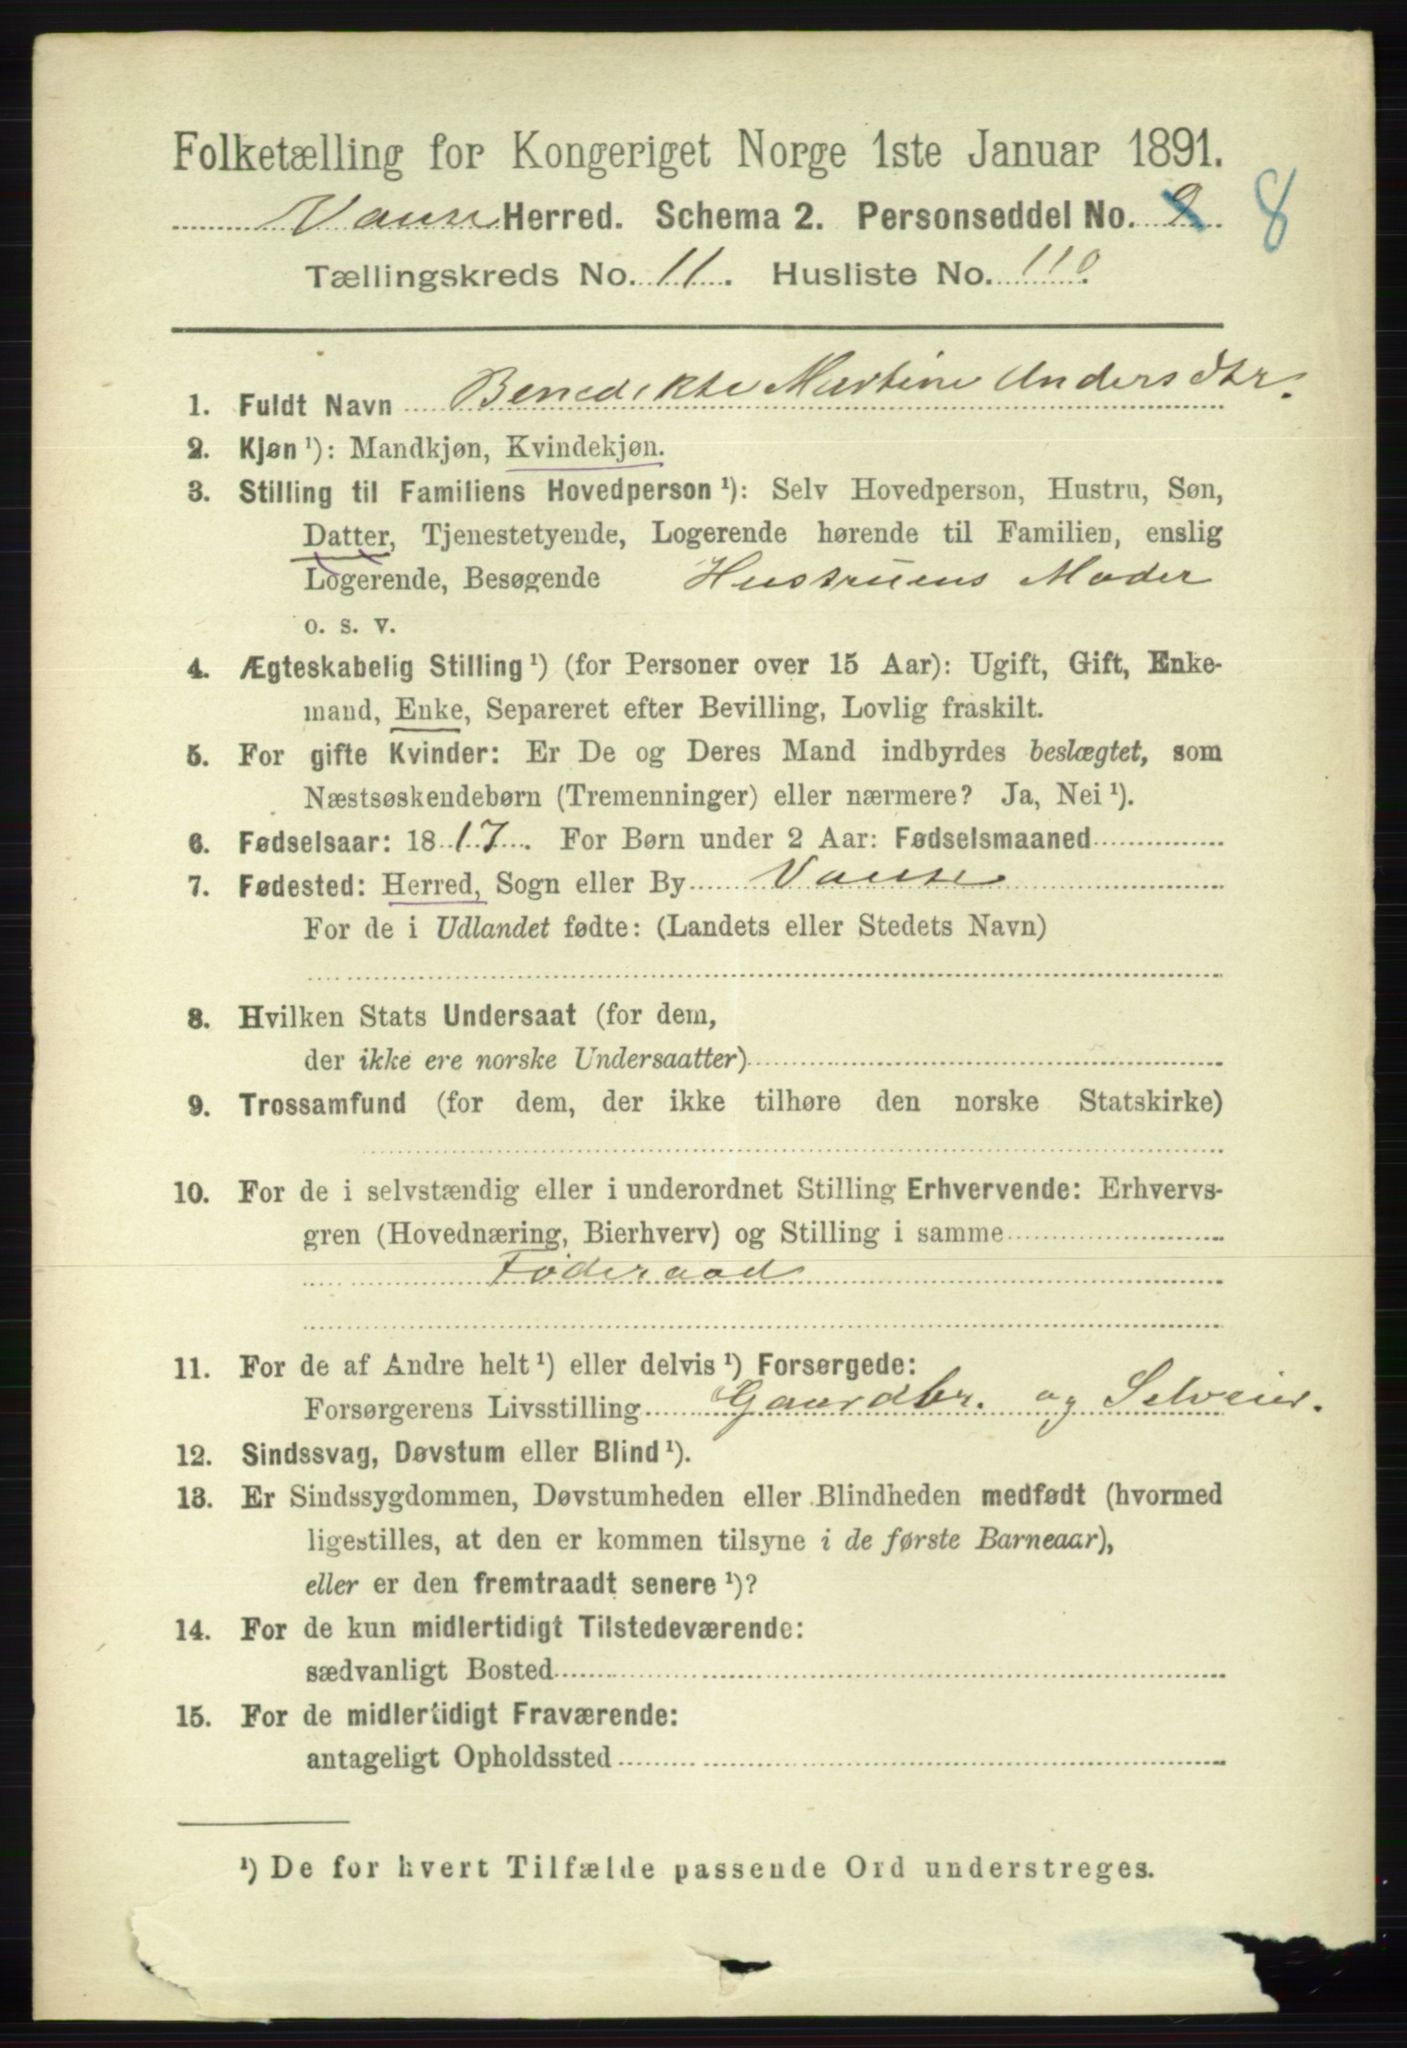 Folketælling for Kongeriget Norge 1ste Januar 1891.
Vanse Herred. Schema 2. Personseddel No. 9. 8
Tællingskreds No. 11. Husliste No. 110
1. Fuldt Navn Benedikte Martine Andersdtr.
2. Kjøn ¹): Mandkjøn, Kvindekjøn.
3. Stilling til Familiens Hovedperson ¹): Selv Hovedperson, Hustru, Søn,
Datter, Tjenestetyende, Logerende hørende til Familien, enslig
Logerende, Besøgende Hustruens Moder
o. s. v.
4. Ægteskabelig Stilling ¹) (for Personer over 15 Aar): Ugift, Gift, Enke-
mand, Enke, Separeret efter Bevilling, Lovlig fraskilt.
5. For gifte Kvinder: Er De og Deres Mand indbyrdes beslægtet, som
Næstsøskendebørn (Tremenninger) eller nærmere? Ja, Nei ¹).
6. Fødselsaar: 1817. For Børn under 2 Aar: Fødselsmaaned
7. Fødested: Herred, Sogn eller By Vanse
For de i Udlandet fødte: (Landets eller Stedets Navn)
8. Hvilken Stats Undersaat (for dem,
der ikke ere norske Undersaatter)
9. Trossamfund (for dem, der ikke tilhøre den norske Statskirke)
10. For de i selvstændig eller i underordnet Stilling Erhvervende: Erhvervs-
gren (Hovednæring, Bierhverv) og Stilling i samme
Føderaad
11. For de af Andre helt ¹) eller delvis ¹) Forsørgede:
Forsørgerens Livsstilling Gaardbr. og Selveier.
12. Sindssvag, Døvstum eller Blind ¹).
13. Er Sindssygdommen, Døvstumheden eller Blindheden medfødt (hvormed
ligestilles, at den er kommen tilsyne i de første Barneaar),
eller er den fremtraadt senere ¹)?
14. For de kun midlertidigt Tilstedeværende:
sædvanligt Bosted
15. For de midlertidigt Fraværende:
antageligt Opholdssted
¹) De for hvert Tilfælde passende Ord understreges.